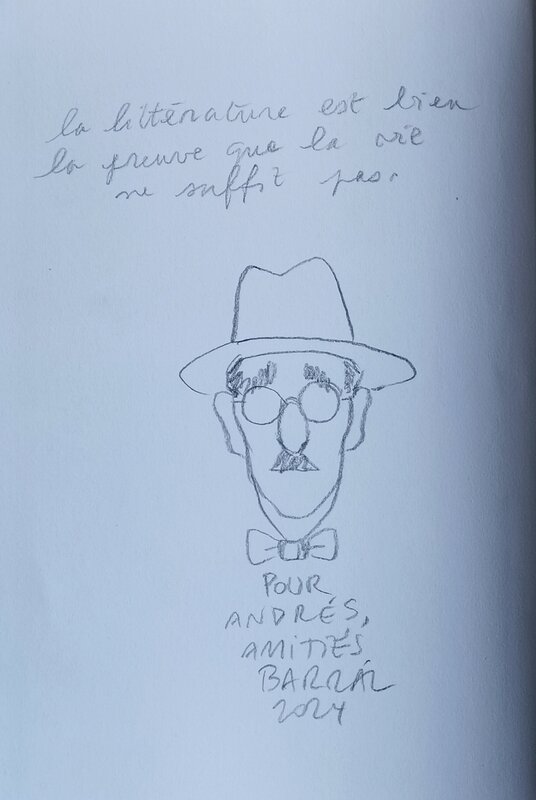 la littérature est bien
la preuve que la vie
ne suffit pas.
POUR
ANDRÉS,
AMITIÉS
BARRAL
2024